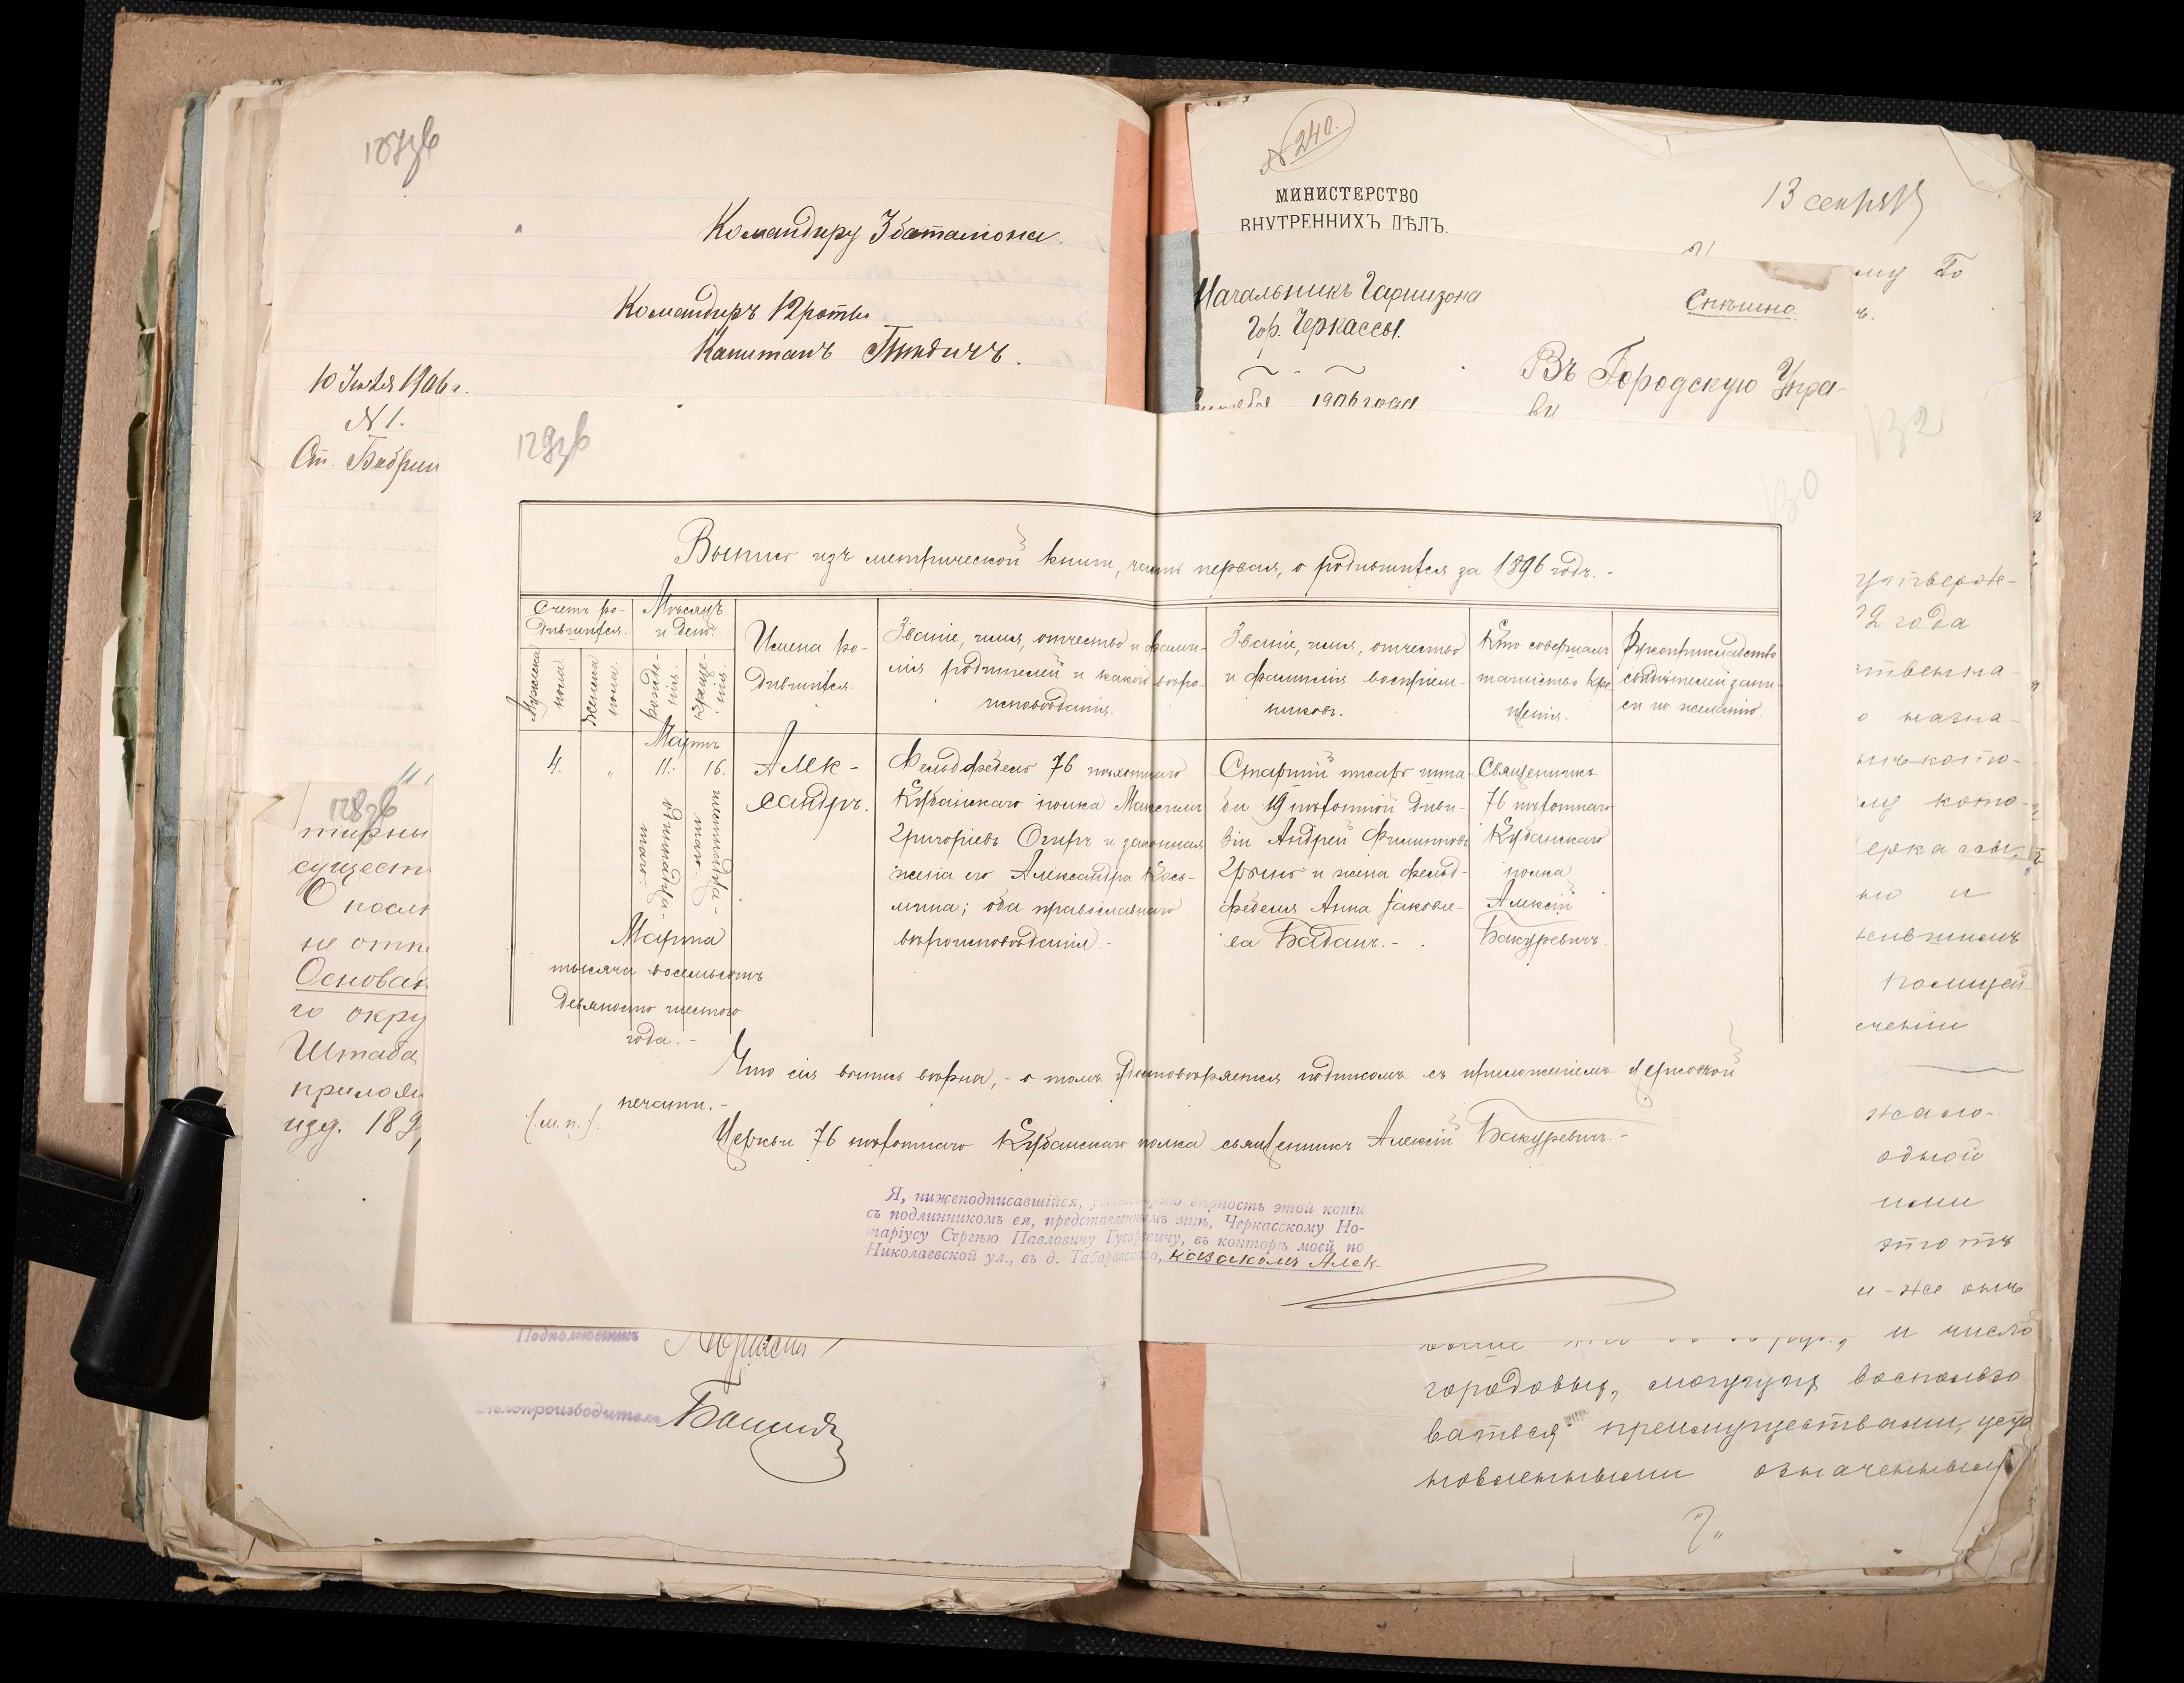 187зв
Командиру 3 баталіона.
Командиръ 12 роты
Капитанъ
10 Іюля 1906 г.
N 1.
Ст. Бобрин
N 240.
МИНИСТЕРСТВО
ВНУТРЕННИХЪ ДѢЛЪ.
13 сентября
Начальникъ Гарнизона
Гор. Черкассы.
1906 года
Спѣшно.
Въ Городскую Упра-
ву
132
129зв
130
Выпись изъ метрической книги, часть первая, о родившихся за 1896 годъ. -
Счетъ ро-
дившихся.
Мужска
пола
Женска
пола.
Мѣсяцъ
и день.
рожде-
нія.
креще-
нія.
Имена ро-
дившихся.
Званіе, имя, отчество и фами-
лія родителей и какого вѣро-
исповѣданія.
Званіе, имя, отчество
и фамилія воспріем-
никовъ.
Кто совершалъ
таинство кре-
щенія.
Рукоприкладство
свидѣтелей запи-
си по желанію.
4.
"
Мартъ
11.
16.
одиннадца-
таго.
шестнадца-
таго.
Марта
тысяча восемьсотъ
девяносто шестого
года. -
Алек-
сандръ.
Фельдфебель 76 пѣхотнаго
Кубанскаго полка Максимъ
Григорьевъ Огирь и законная
жена его Александра Кось-
мина; оба православнаго
вѣроисповѣданія. -
Старшій писарь шта-
ба 19 пѣхотной диви-
зіи Андрей Филипповъ
и жена фельд-
фебеля Анна Іаковле-
ва Баданъ. -
Священникъ
76 пѣхотнаго
Кубанскаго
полка
Алексій
Бакуревичъ.
Что сія выпись вѣрна, - о томъ удостовѣряется подписомъ съ приложеніемъ церковной
печати. -
(м.п.).
Церкви 76 пѣхотнаго Кубанскаго полка священникъ Алексій Бакуревичъ. -
Я, нижеподписавшійся, удостовѣряю вѣрность этой копіи
съ подлинникомъ ея, представленнымъ мнѣ, Черкасскому Но-
таріусу Сергѣю Павловичу Гусаревичу, въ конторѣ моей по
Николаевской ул., въ д. Табаровскаго, казакомъ Алек-
128зв
тирны
сущест
О посл
не отк
Основан
го окру
Штаба
прилож
изд. 189
Подполковникъ
Дѣлопроизводитель
утвержде-
2 года
ственна-
о назна-
му кото-
еркассы,
но и
полицей
ченіи
жало-
одной
ими
этотъ
и-же онъ
и число
городовыхъ, могущихъ воспользо
ваться преимуществами, уста
новленными означеннымъ